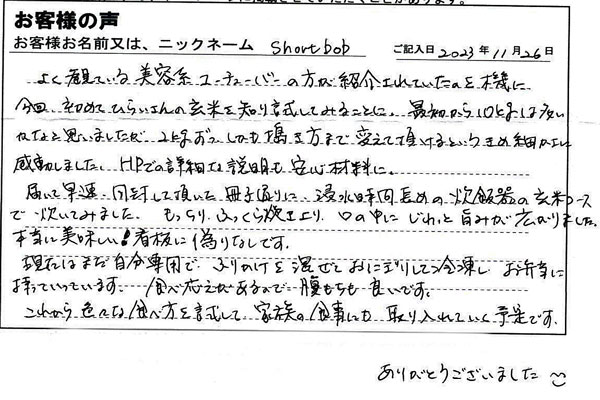 お客様の声
お客様お名前又は、ニックネーム Shortbob ご記入日 2023年11月26日
よく観ている美容系ユーチューバーの方が紹介されていたのを機に
今回、初めてひらいさんの玄米を知り試してみることに。最初から10kgは多い
かなと思いましたが 2kgずつ、しかも搗き方まで変えて頂けるというきめ細かさに
感動しました。HPでの詳細な説明も安心材料に。
届いて早速、同封して頂いた冊子通りに、浸水時間長めの炊飯器の玄米コース
で炊いてみました。もっちり、ふっくら炊き上り、口の中にじわっと旨みが広がりました。
本当に美味しい!看板に偽りなしです。
現在はまだ自分専用で、ふりかけを混ぜておにぎりして冷凍し お弁当に
持っていっています。食べ応えがあるので腹もちも良いです。
これから色々な食べ方を試して、家族の食事にも取り入れていく予定です。
ありがとうございました